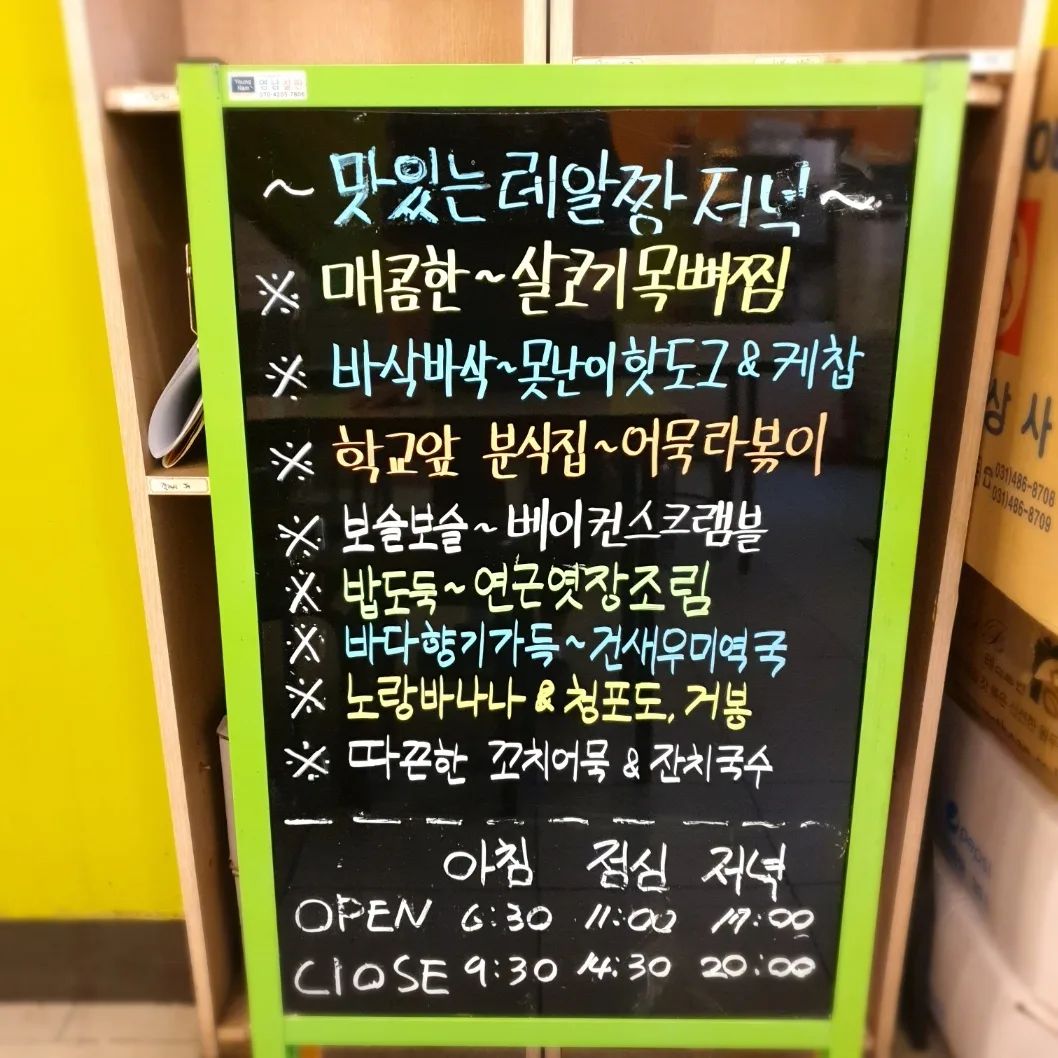 Young Nam
~ 맛있는 레알짱 저녁 ~
※ 매콤한 ~ 살코기목뼈찜
※ 바삭바삭~못난이핫도그 & 케찹
※ 학교앞 분식집~어묵라볶이
※ 보슬보슬~ 베이컨스크램블
※ 밥도둑~연근엿장조림
※ 바다향기가득~건새우미역국
※ 노랑바나나 & 청포도, 거봉
※ 따끈한 꼬치어묵 & 잔치국수
아침 점심 저녁
OPEN 6:30 11:00 17:00
ClOSE 9:30 14:30 20:00
상사
031)486-8708
031)486-8709